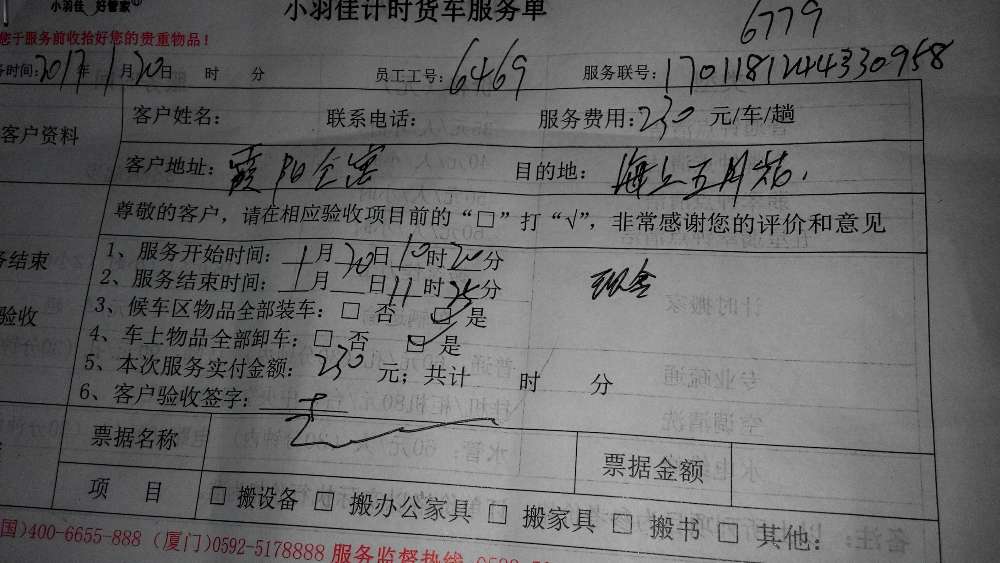 小羽佳 好管家
小羽佳计时货车服务单
6779
您于服务前收拾好您的贵重物品！
务时间：2017年1月20日 时 分 员工工号：6469 服务联号：1701181244330958
客户资料
客户姓名： 联系电话： 服务费用：230 元/车/趟
客户地址：霞阳仝害 目的地：海上五月花.
尊敬的客户，请在相应验收项目前的“□”打“√”，非常感谢您的评价和意见
务结束
验收
1、服务开始时间：1月20日10时20分
现金
2、服务结束时间：1月 日11时35分
3、候车区物品全部装车：□ 否 □ 是
4、车上物品全部卸车：□ 否 □ 是
5、本次服务实付金额：230 元；共计 时 分
6、客户验收签字：
票据名称 票据金额
项 目 □ 搬设备 □ 搬办公家具 □ 搬家具 □ 搬书 □ 其他：
国)400-6655-888 (厦门)0592-5178888 服务监督热线